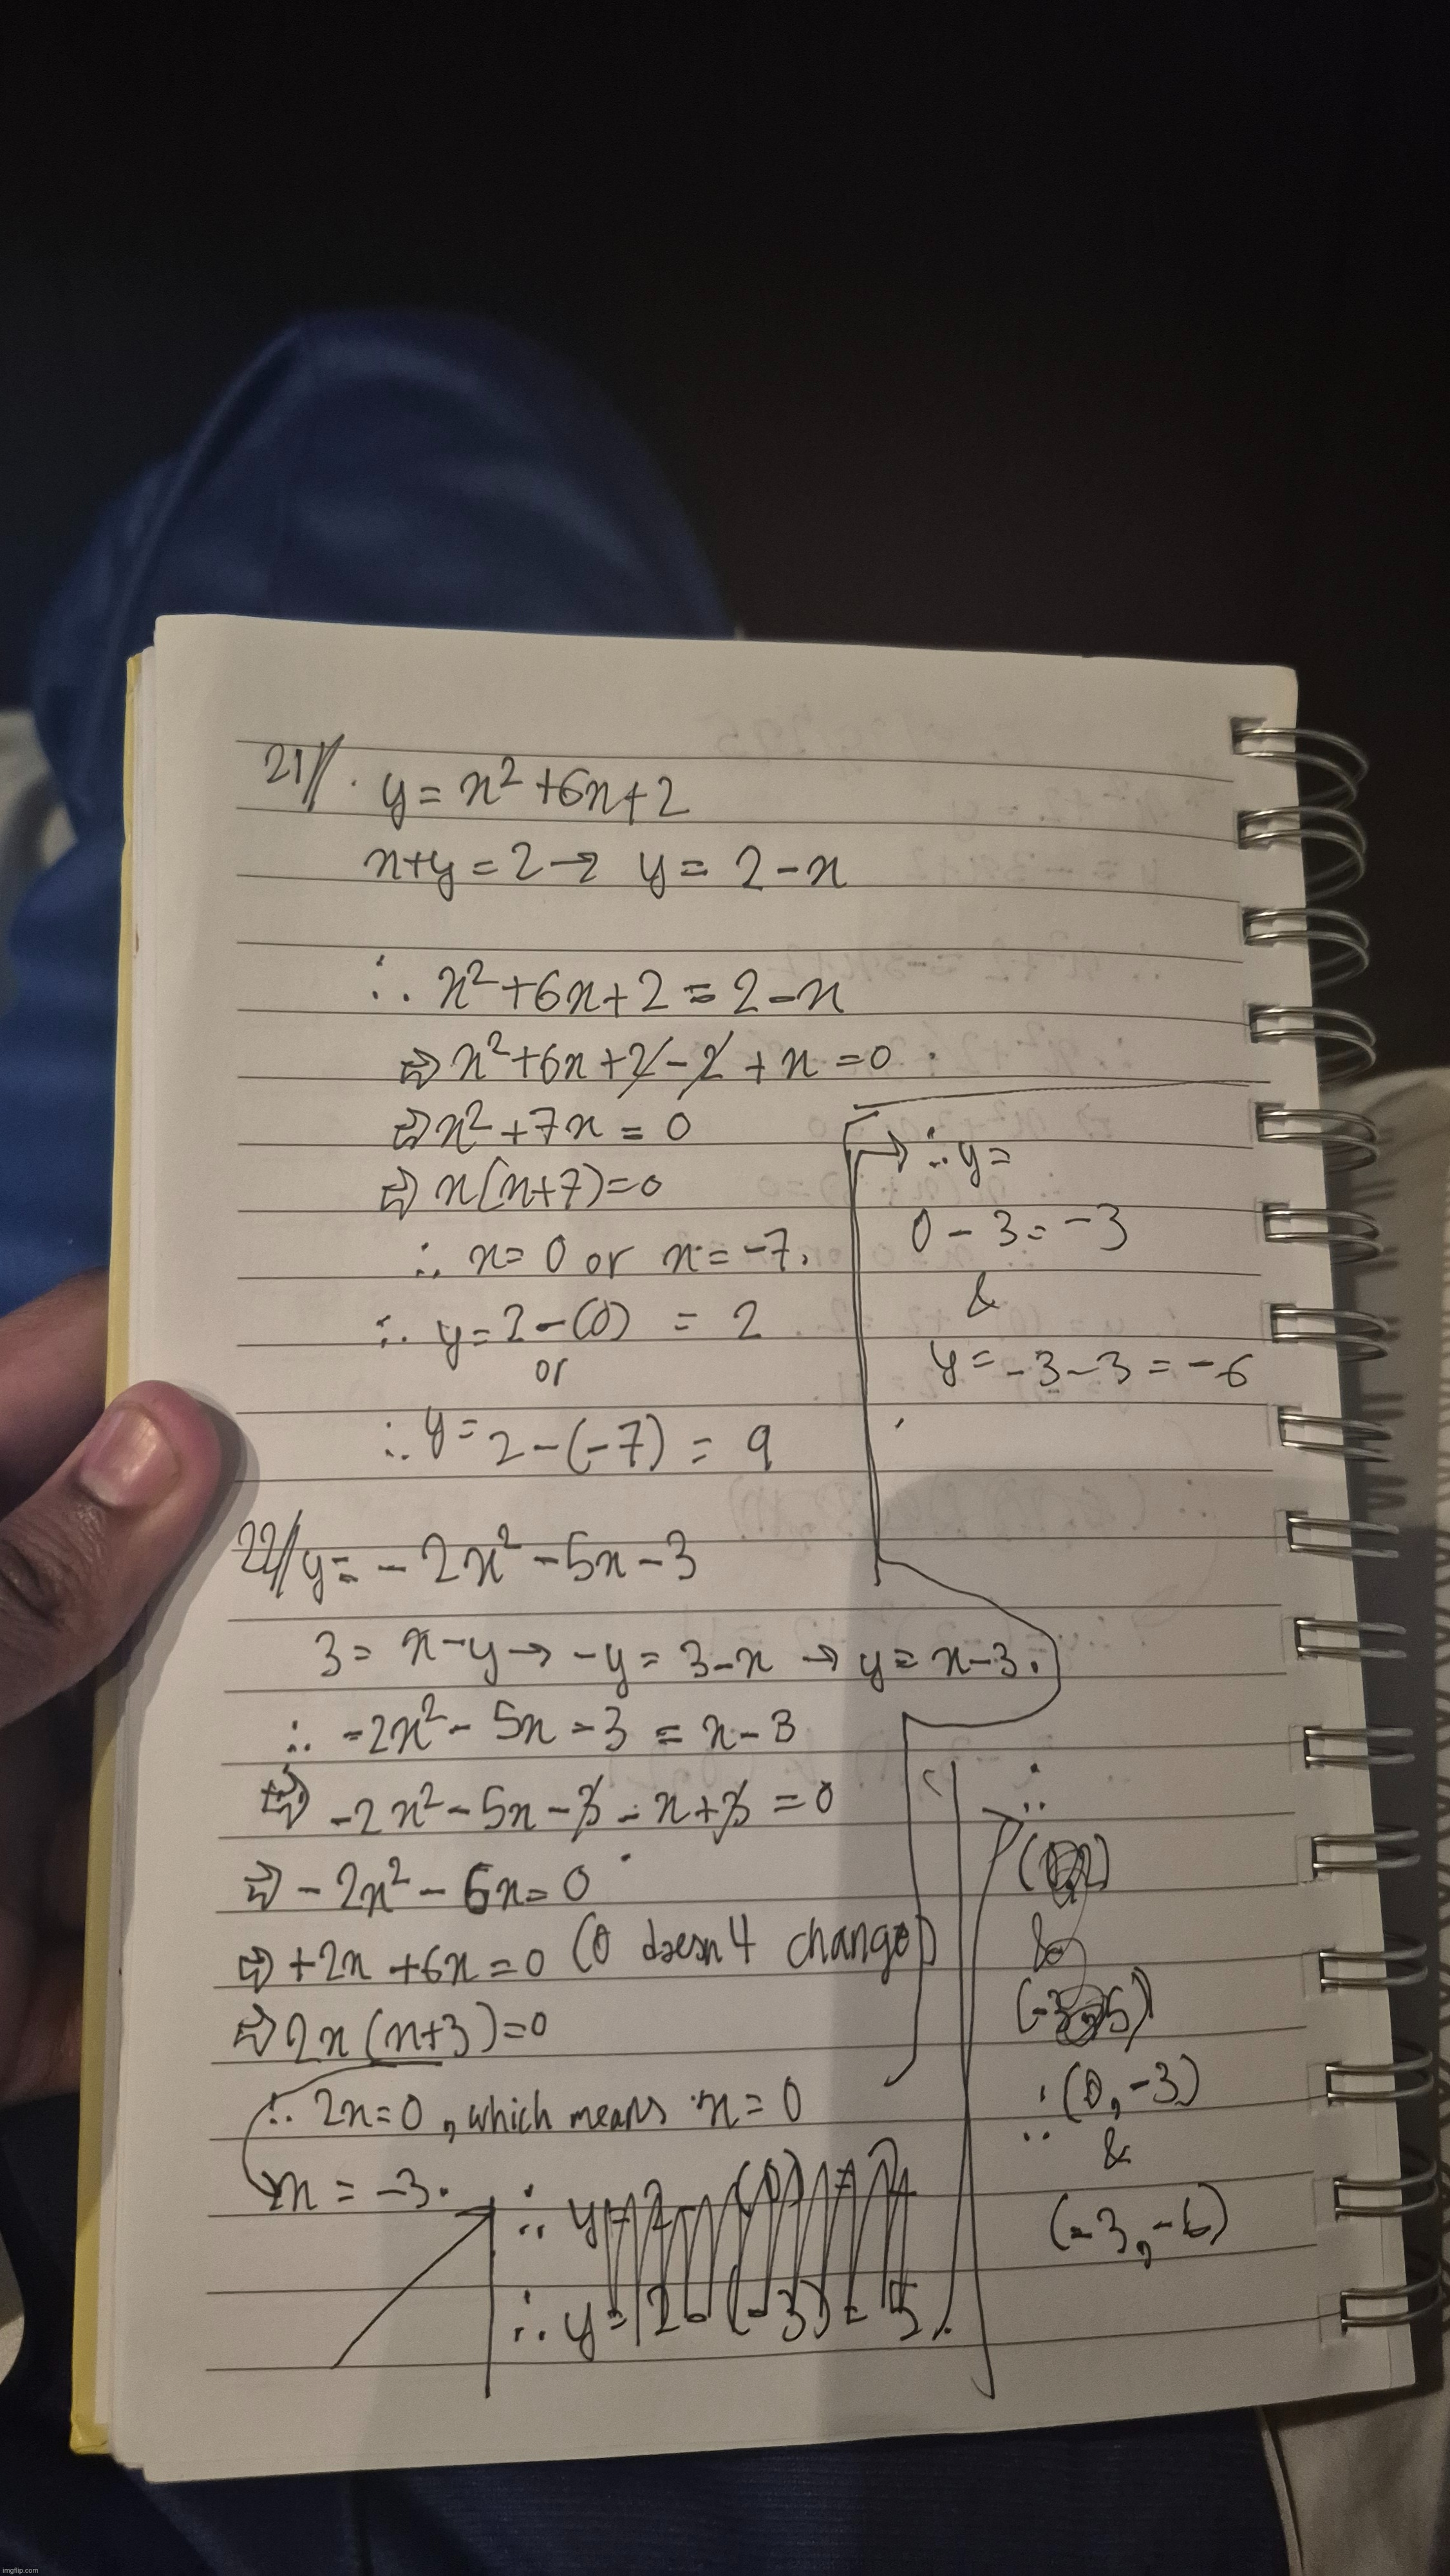 21// . y = x² + 6x + 2
x+y = 2 → y = 2 - x
∴ x² + 6x + 2 = 2 - x
⇒ x² + 6x + 2 - 2 + x = 0
⇒ x² + 7x = 0
⇒ x(x+7) = 0
∴ x = 0 or x = -7.
∴ y = 2 - (0) = 2
or
∴ y = 2 - (-7) = 9
22// y = - 2x² - 5x - 3
3 = x - y → -y = 3 - x → y = x - 3.
∴ -2x² - 5x - 3 = x - 3
⇒ -2x² - 5x - 3 - x + 3 = 0
⇒ - 2x² - 6x = 0
⇒ +2x + 6x = 0 (0 doesn4 change)
⇒ 2x (x+3) = 0
∴ 2x = 0, which means x = 0
x = -3.
∴ y = 2 - (0) = 2
∴ y = 2 - (-3) = 5.
→ ∴ y =
0 - 3 = -3
&
y = -3 - 3 = -6
∴
&
∴ (0, -3)
&
(-3, -6)
imgflip.com